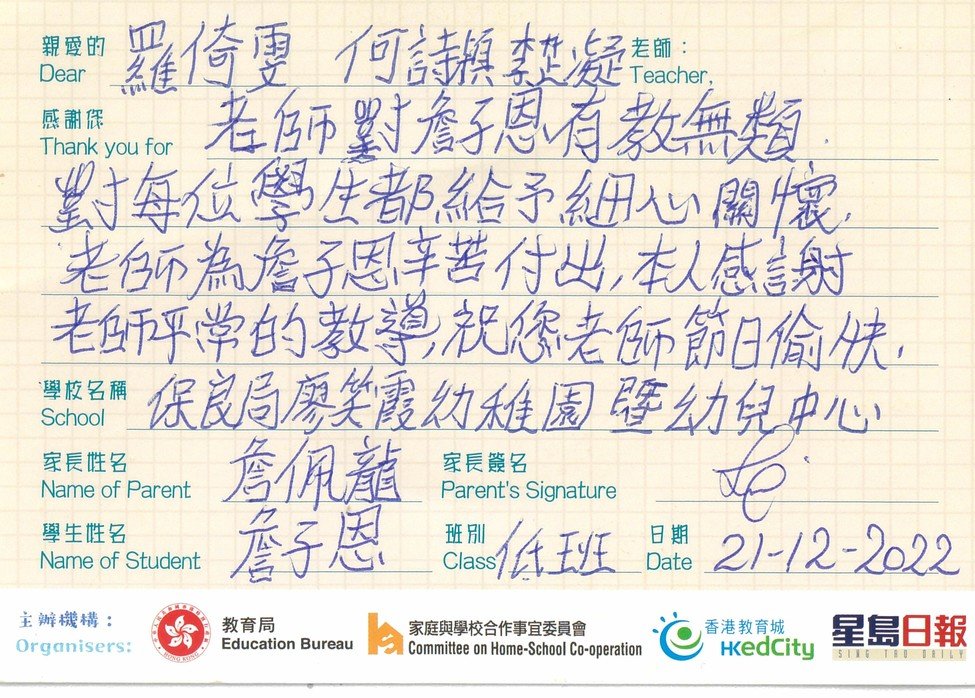 親愛的 羅倚雯 何詩穎 凝 老師：
Dear Teacher,
感謝您 老師對詹子恩有教無類.
Thank you for
對每位學生都給予細心關懷,
老師為詹子恩辛苦付出,本人感謝
老師平常的教導,祝您老師節日偷快,
學校名稱 保良局廖笑霞幼稚園暨幼兒中心
School
家長姓名 詹佩龍 家長簽名
Name of Parent Parent's Signature
學生姓名 詹子恩 班別 低班 日期 21-12-2022
Name of Student Class Date
主辦機構： 教育局 家庭與學校合作事宜委員會 香港教育城 星島日報
Organisers: Education Bureau Committee on Home-School Co-operation HKedCity SING TAO DAILY
HONG KONG